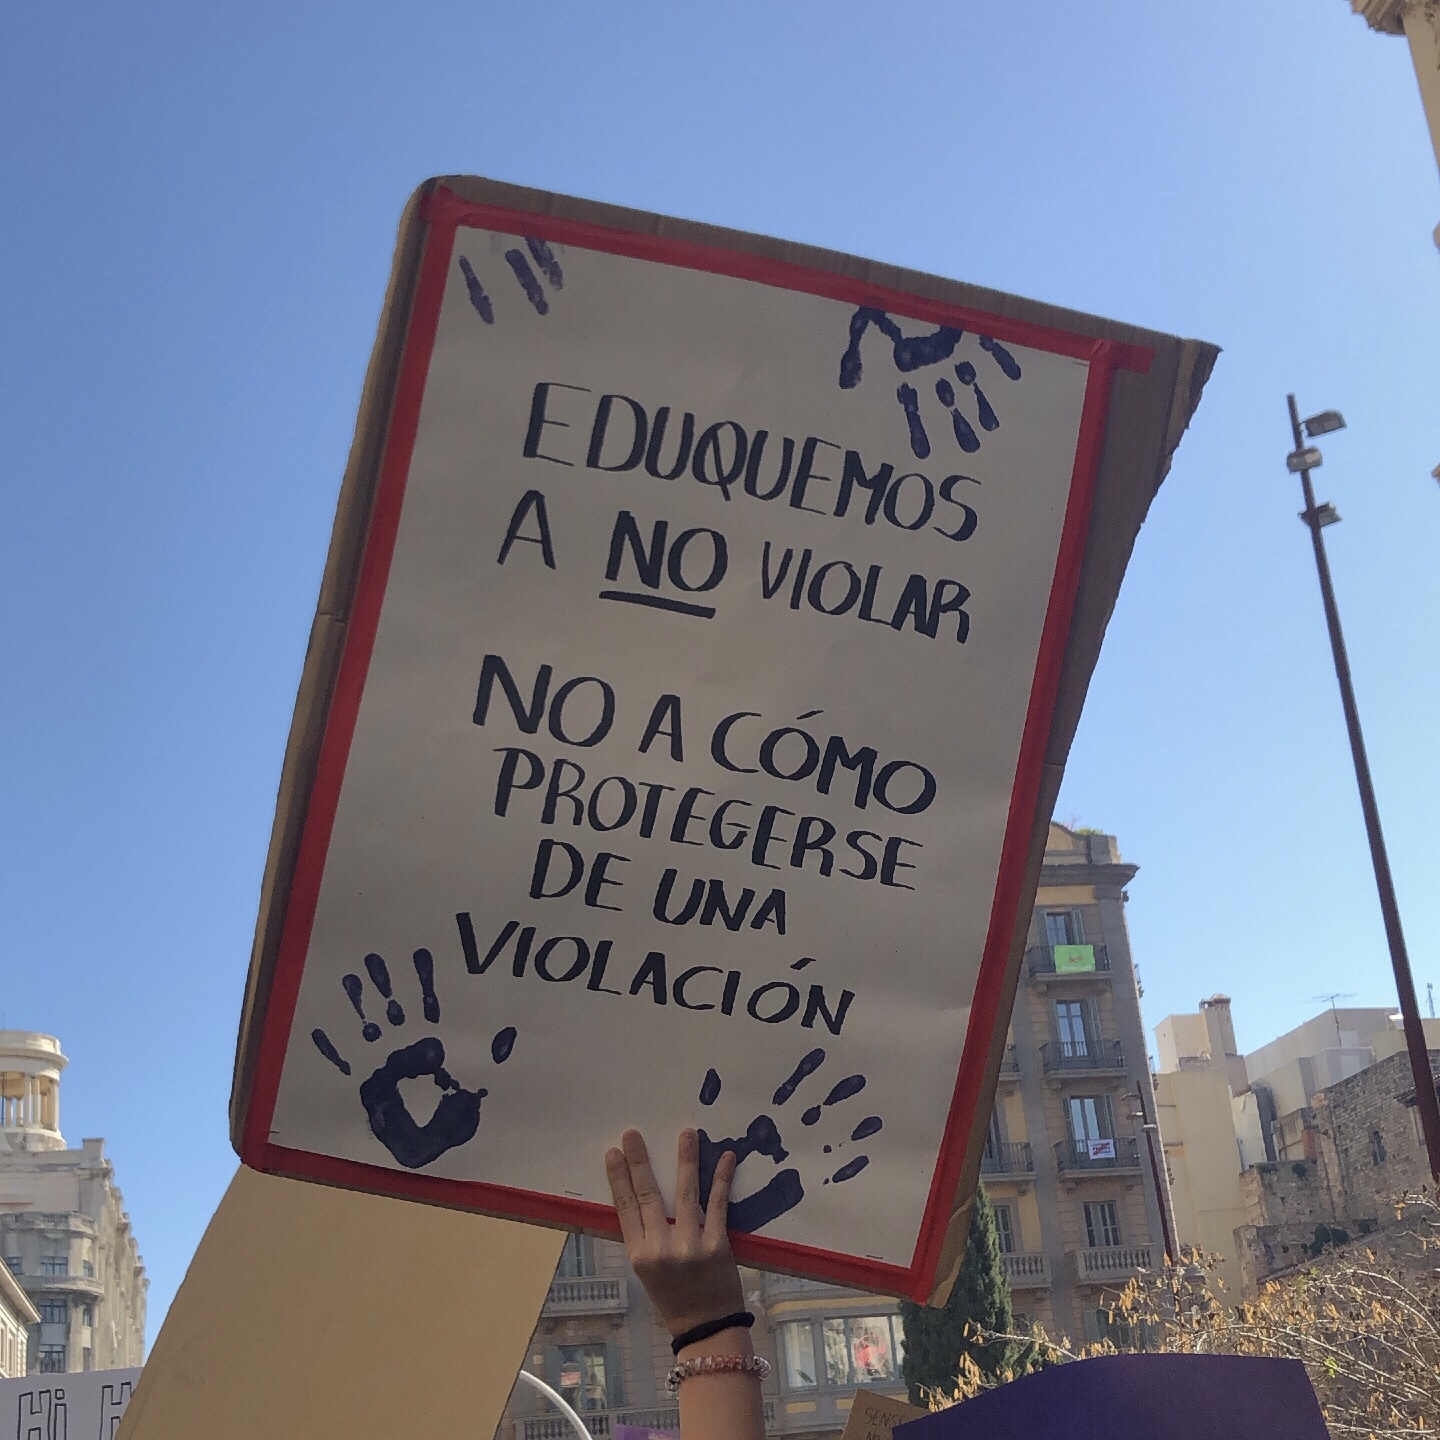 EDUQUEMOS
A NO VIOLAR
NO A CÓMO
PROTEGERSE
DE UNA
VIOLACIÓN
Hi H
SENSE